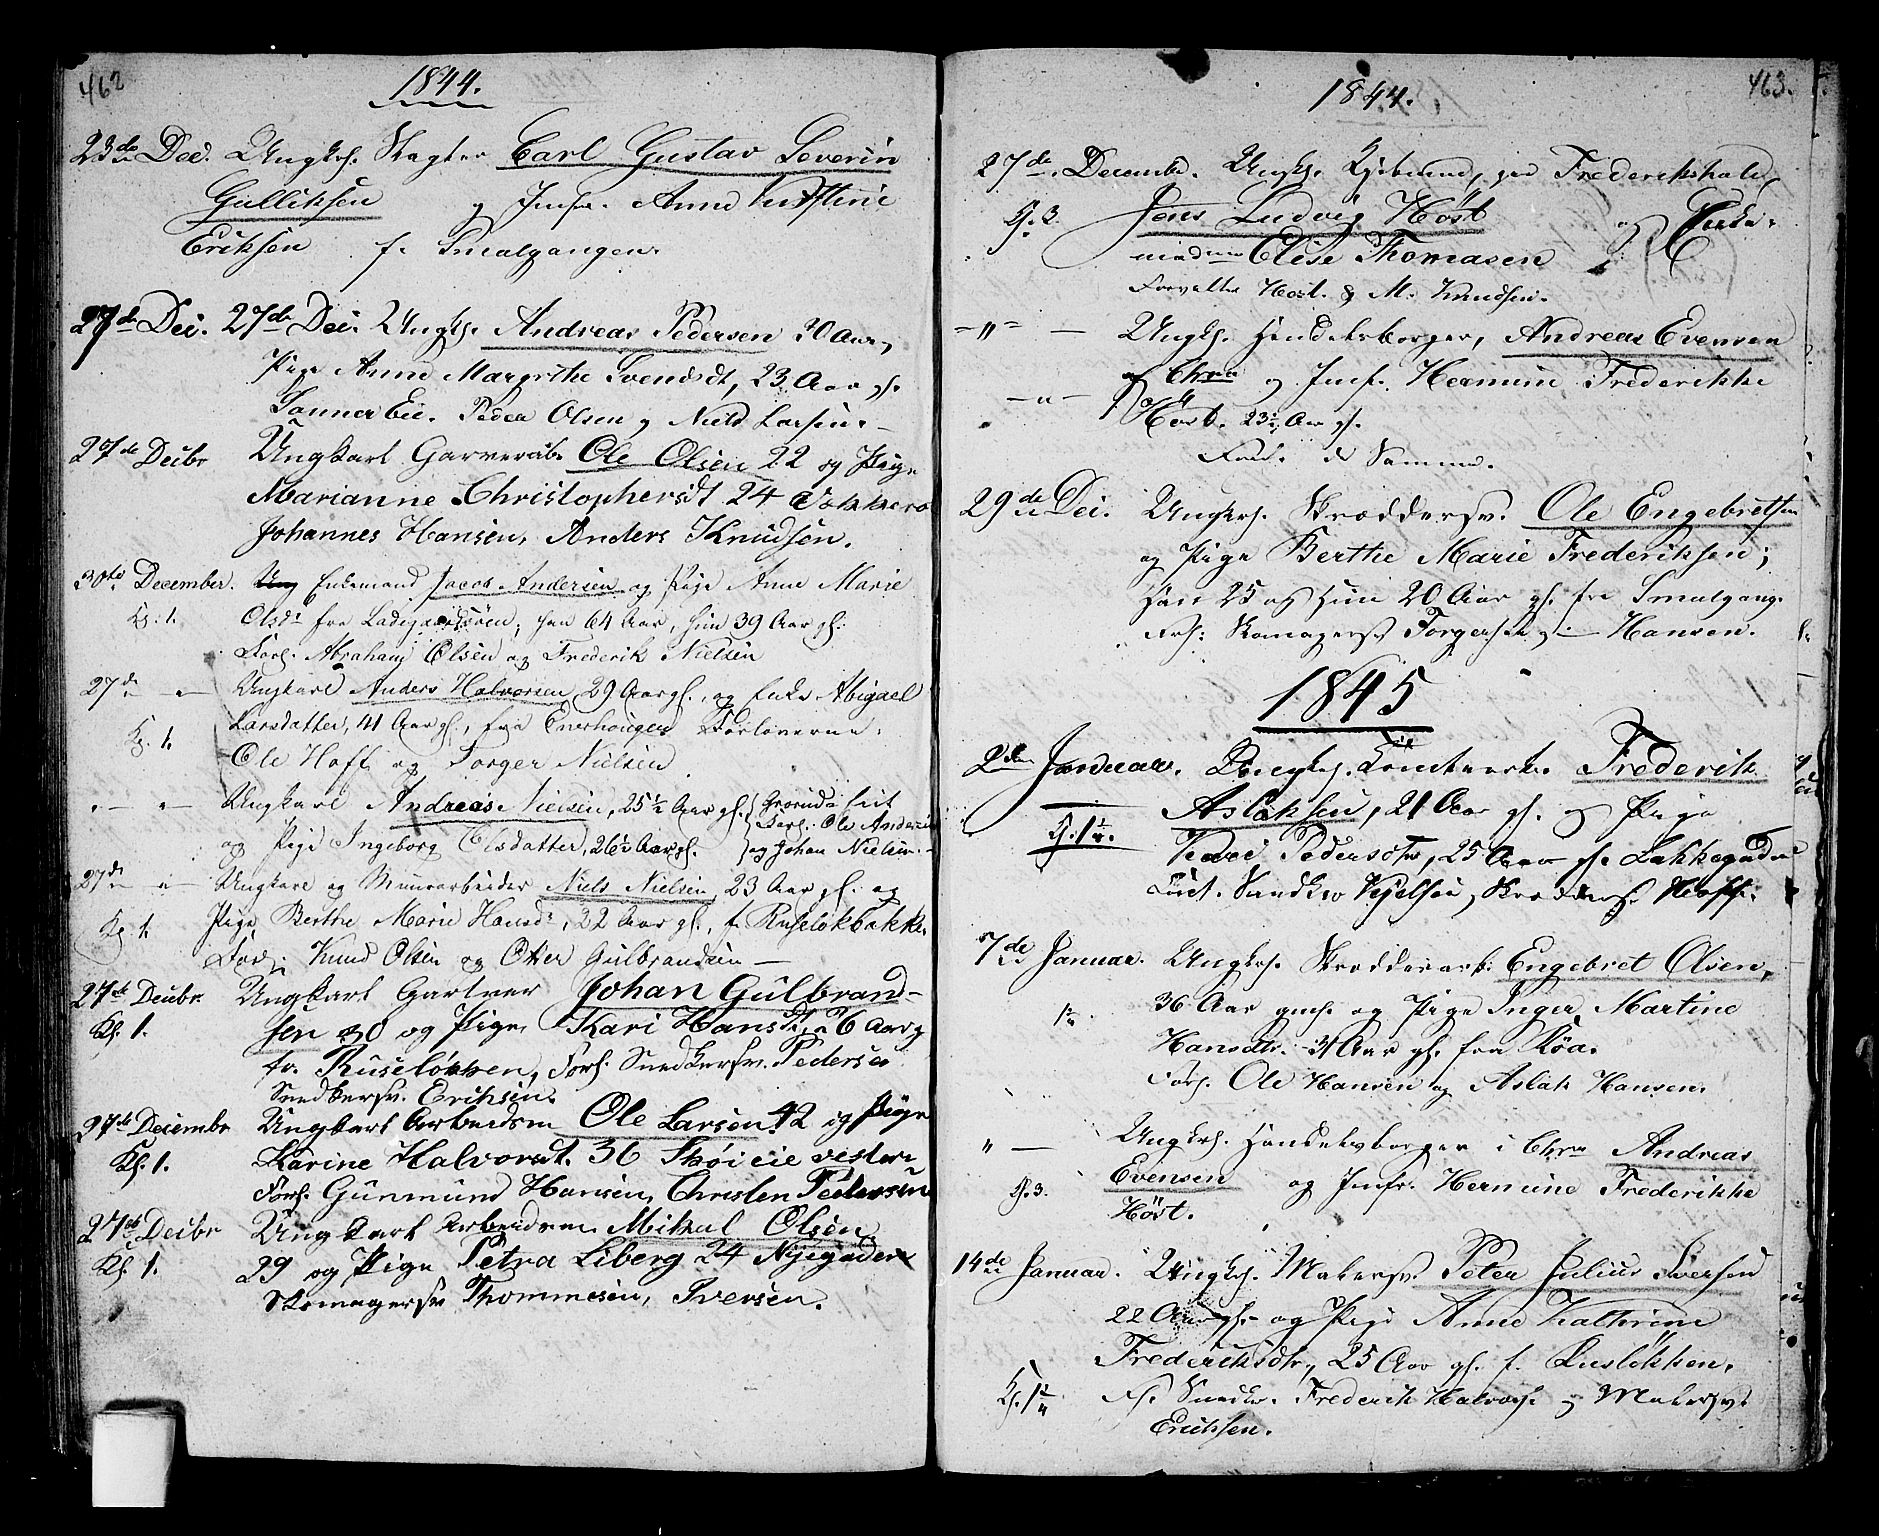 462
1844.
23de Dec. Ungkrl. Slagter Carl Gustav Severin
Gulliksen og Jmfr. Anne Kirstine
Eriksen f. Smalgangen.
27de Dec. 27de Dec. Ungkrl. Andreas Pedersen 30 Aar,
Pige Anne Margrethe Svendsdt, 23 Aar gl.
Peder Olsen og Niels Larsen.
27de Decbr Ungkarl Olsen 22 og Pige
Marianne Christophersdt 24
Johannes Hansen, Anders Knudsen.
30te December. Ung Enkemand Jacob Andersen og Pige Anne Marie
Olsdr fra Ladegaardsøen; han 64 Aar, hun 39 Aar gl.
Kl. 1.
Forl. Abraham Olsen og Frederik Nielsen
27de — " — Ungkarl Anders Halvorsen 29 Aar gl., og Enke Abigael
Larsdatter, 41 Aar gl., fra Enerhougen Forloverne:
Kl. 1.
Ole Hoff og Torger Nielsen
" — " — Ungkarl Andreas Nielsen, 25½ Aar gl.
og Pige Ingeborg Olsdatter, 26½ Aar gl.
Forl. Ole Andersen
og Johan Nielsen.
27de — " — Ungkarl og Muurarbeider Niels Nielsen, 23 Aar gl. og
Pige Berthe Marie Hansdr, 22 Aar gl., f. Ruseløkbakken
Kl. 1.
Forl. Knud Olsen og Otter Gulbrandsen —
27de Decbr Ungkarl Gartner Johan Gulbrand-
Kl. 1. sen 30 og Pige Kari Hansdt, 26 Aar gl
fr. Ruseløkken, Forl. Snedkersv. Pedersen
Snedkersv. Eriksen.
27de Decembr Ungkarl Arbeidsm Ole Larsen 42 og Pige
Kl. 1. Karine Halvorsdt. 36
Forl. Gunmund Hansen, Christen Pedersen
27de Decbr Ungkarl Arbeidsm. Mikal Olsen
Kl. 1. 29 og Pige Petra Liberg 24 Nyegaden
Skomagersv Thommesen, Iversen.
463.
1844.
27de Decembr. Ungk. Frederikshald,
Kl. 3. Jens Ludvig Höst og Enke-
mad Elise Thomasen
Forvalter Höst & M. Knudsen.
— " — Ungk. Handelsborger, Andreas Evensen
af Chra og Jmfr. Hermine Frederikke
— " — Höst. 23½ Aar gl.
Forl. de Samme.
29de Dec. Ungkrl. Skræddersv. Ole Engebretsen
og Pige Berthe Marie Frederiksen;
Han 25 og Hun 20 Aar gl. fra Smalgang.
Forl: Skomagersv Torgersen og — Hansen.
1845
2den Januar. Frederik
Aslaksen, 21 Aar gl. og Pige
Kl. 1¼.
Kari Pedersdtr, 25 Aar gl. Lakkegaden
Kjelsen, Skræddersv. Hoff.
7de Januar. Ungkrl. Skrædderark: Engebret Olsen,
36 Aar gml. og Pige Inger Martine
1½.
Hansdtr. 31 Aar gl. fra Röa.
Forl. Ole Hansen og Aslak Hansen.
" — Ungkrl. Handelsborger i Chra Andreas
Kl. 3. Evensen og Jmfr. Hermine Frederikke
Höst.
14de Januar. Ungkrl. Malersv. Peter Julius Iversen
22 Aar gl. og Pige Anne Kathrine
Frederiksdtr, 25 Aar gl. f. Rusløkken.
Kl. 1¼ Fl. Snedkr. Frederik Halvors. og Malersv.
Eriksen.